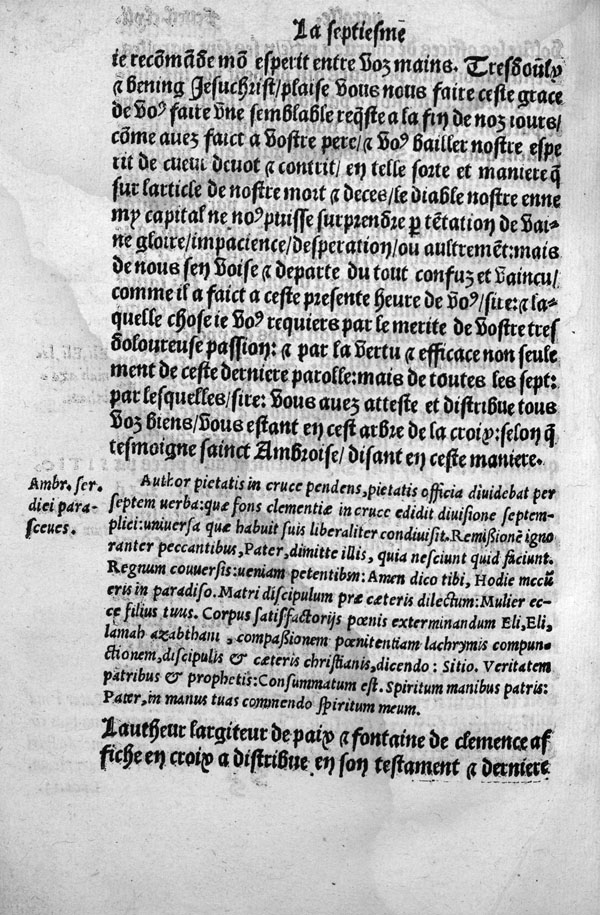 La septiesme
ie recōmāde mō esperit entre voz mains. Tresdoulx
& bening Jesuchrist/plaise vous nous faire ceste grace
de voꝰ faire vne semblable reqste a la fin de noz iours/
cōme auez faict a vostre pere/& voꝰ bailler nostre espe
rit de cueur deuot & contrit/en telle sorte et maniere q̄
sur larticle de nostre mort & deces/le diable nostre enne
my capital ne noꝰ puisse surprendre ꝑ tētation de vai-
ne gloire/impacience/desperation/ou aultremēt:mais
de nous sen voise & departe du tout confuz et vaincu/
comme il a faict a ceste presente heure de voꝰ/sire:& la-
quelle chose ie voꝰ requiers par le merite de vostre tres
doloureuse passion: & par la vertu & efficace non seule
ment de ceste derniere parolle:mais de toutes les sept:
par lesquelles/sire: vous auez atteste et distribue tous
voz biens/vous estant en cest arbre de la croix:selon q̄
tesmoigne sainct Ambroise/disant en ceste maniere.
Ambr. ser.
diei para-
sceues.
Author pietatis in cruce pendens,pietatis officia diuidebat per
septem uerba:quæ fons clementiæ in cruce edidit diuisione septem-
plici:uniuersa quæ habuit suis liberaliter condiuisit.Remißionē igno
ranter peccantibus,Pater,dimitte illis, quia nesciunt quid faciunt.
Regnum couuersis:ueniam petentibm:Amen dico tibi, Hodie mecū
eris in paradiso. Matri discipulum præ cæteris dilectum:Mulier ec-
ce filius tuus. Corpus satisfactorijs pœnis exterminandum Eli,Eli,
lamah azabthani, compaßionem pœnitentiam lachrymis compun-
ctionem,discipulis & cæteris christianis,dicendo: Sitio. Veritatem
patribus & prophetis:Consummatum est. Spiritum manibus patris:
Pater,in manus tuas commendo spiritum meum.
Lautheur largiteur de paix & fontaine de clemence af
fiche en croix a distribue en son testament & derniere